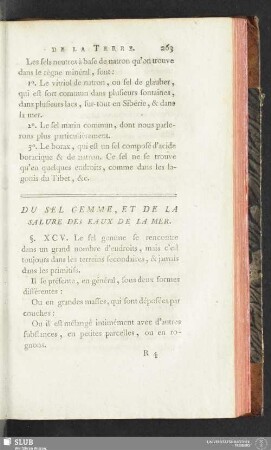 DE LA TERRE. 263
Les sels neutres à base de natron qu'on trouve
dans le règne minéral, sont:
1º. Le vitriol de natron, ou sel de glauber,
qui est fort commun dans plusieurs fontaines,
dans plusieurs lacs, sur-tout en Sibérie, & dans
la mer.
2º. Le sel marin commun, dont nous parle-
rons plus particulièrement.
3º. Le borax, qui est un sel composé d'acide
boracique & de natron. Ce sel ne se trouve
qu'en quelques endroits, comme dans les la-
gonis du Tibet, &c.
DU SEL GEMME, ET DE LA
SALURE DES EAUX DE LA MER.
§. XCV. Le sel gemme se rencontre
dans un grand nombre d'endroits, mais c'est
toujours dans les terreins secondaires, & jamais
dans les primitifs.
Il se présente, en général, sous deux formes
différentes:
Ou en grandes masses, qui sont déposées par
couches:
Ou il est mélangé intimément avec d'autres
substances, en petites parcelles, ou en ro-
gnons.
R 4
SLUB